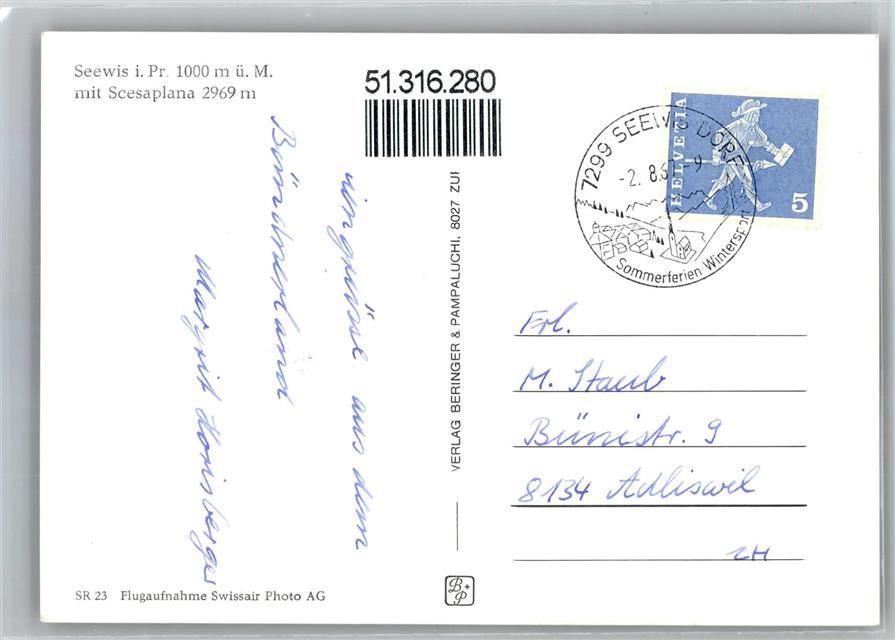 Seewis i. Pr. 1000 m ü. M.
mit Scesaplana 2969 m
51.316.280
aus dem
Bündnerland
Margrit
VERLAG BERINGER & PAMPALUCHI, 8027 ZUI
HELVETIA
5
7299 SEEWIS DORF
-2. 8.6 -9
Sommerferien Wintersport
Frl.
M. Staub
Bünistr. 9
8134 Adliswil
ZH
SR 23 Flugaufnahme Swissair Photo AG
B+P